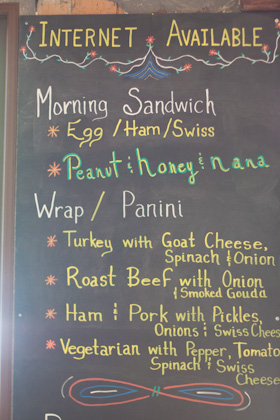 INTERNET AVAILABLE
Morning Sandwich
* Egg / Ham / Swiss
* Peanut & honey & nana
Wrap / Panini
* Turkey with Goat Cheese,
Spinach & Onion
* Roast Beef with Onion
& Smoked Gouda
* Ham & Pork with Pickles,
Onions & Swiss Chees
* Vegetarian with Pepper, Tomato
Spinach & Swiss
Cheese